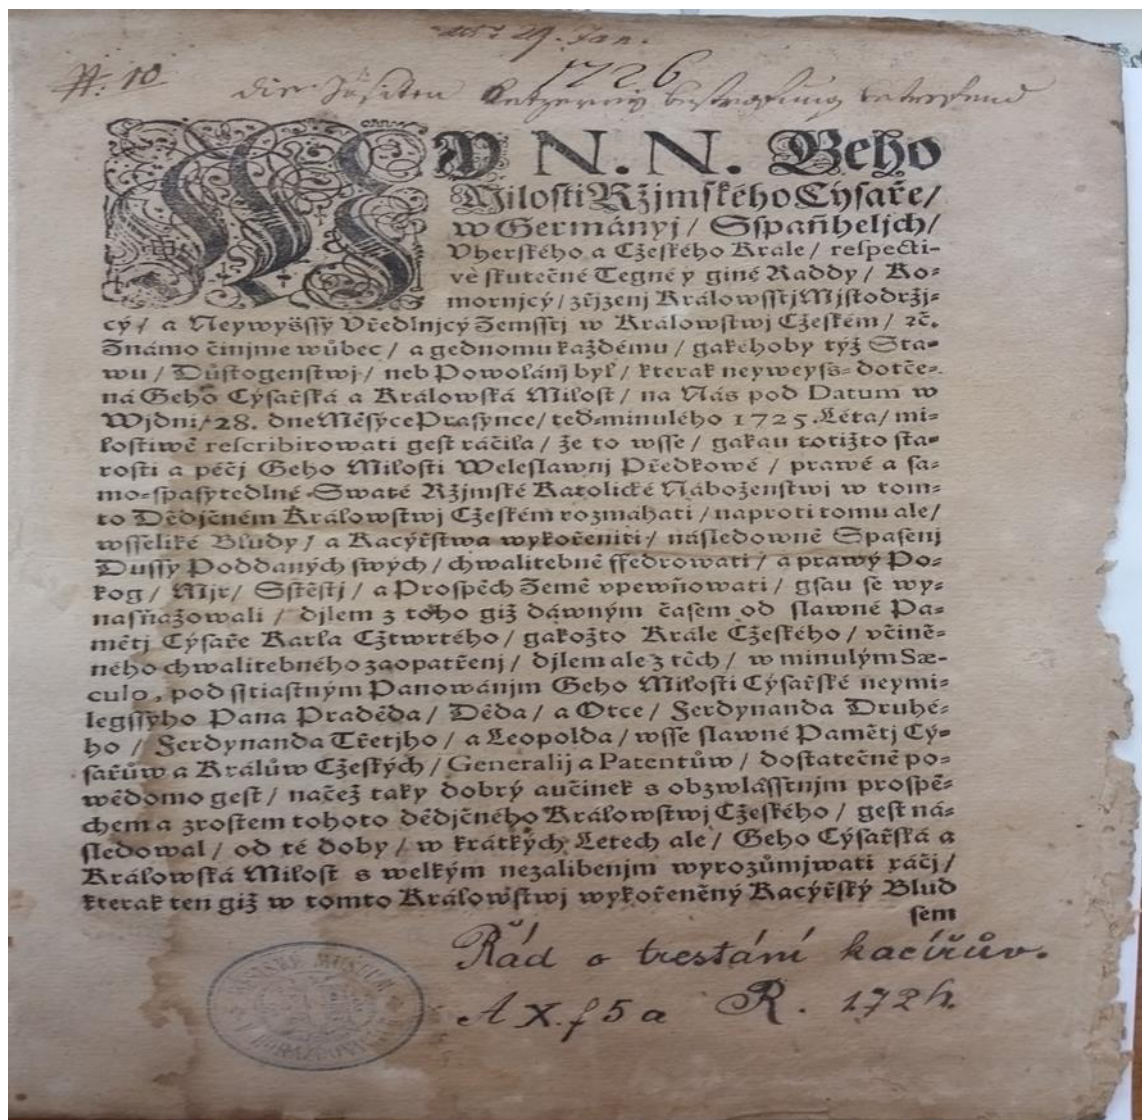 29. Jan.
1726
No. 10
die bestrafung betrefend
MY N. N. Geho
Milosti Ržjmského Cýsaře/
w Germányj / Sspañheljch/
Vherského a Cžeského Krále / respecti-
vè skutečné Tegné y giné Raddy / Ko-
mornjcý / zřjzenj Králowsstj Mjstodržj-
cý / a Neywyšssý Vředlnjcý Zemsstj w Králowstwj Cžeském / ꝛč.
Známo činjme wůbec / a gednomu každému / gakéhoby týž Sta-
wu / Důstogenstwj / neb Powolánj byl / kterak neyweyſs-dotče-
ná Geho Cýsařská a Králowská Milost / na Nás pod Datum w
Wjdni / 28. dne Měsýce Prasynce / teď-minulého 1725. Léta / mi-
lostiwě rescribirowati gest ráčila / že to wsse / gakau totižto sta-
rosti a péčj Geho Milosti Weleslawnj Předkowé / prawé a sa-
mo-spasytedlné Swaté Ržjmské Katolické Náboženstwj w tom-
to Dědjčném Králowstwj Cžeském rozmáhati / naproti tomu ale /
wsseliké Bludy / a Kacýřstwa wykořeniti / následowně Spasenj
Dussý Poddaných swých / chwalitebně ffedrowati / a prawý Po-
kog / Mjr / Sstěstj / a Prospěch Země vpewňowati / gsau se wy-
nasňažowali / djlem z toho giž dáwným časem od slawné Pa-
mětj Cýsaře Karla Cžtwrtého / gakožto Krále Cžeského / včině-
ného chwalitebného zaopatřenj / djlem ale z těch / w minulým Sæ-
culo, pod sstiastným Panowánjm Geho Milosti Cýsařské neymi-
legssýho Pana Praděda / Děda / a Otce / Ferdynanda Druhé-
ho / Ferdynanda Třetjho / a Leopolda / wsse slawné Pamětj Cý-
sařůw a Králůw Cžeských / Generalij a Patentůw / dostatečně po-
wědomo gest / načež taky dobrý aučinek s obzwlásstnjm prospě-
chem a zrostem tohoto dědjčného Králowstwj Cžeského / gest ná-
sledowal / od té doby / w krátkých Letech ale / Geho Cýsařská a
Králowská Milost s welkým nezalibenjm wyrozůmjwati ráčj /
kterak ten giž w tomto Králowstwj wykořeněný Kacýřský Blud
sem
Řád o trestání kacířův.
A X. f 5 a R. 172
MUSEUM